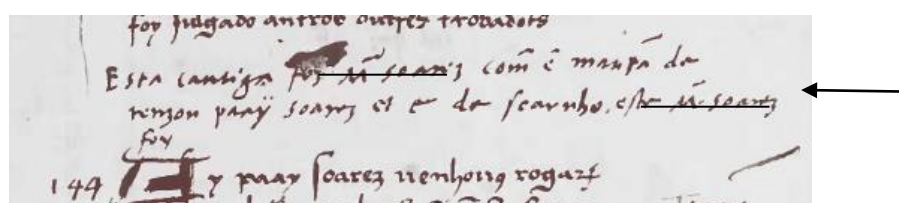 foy Julgado antroe outrez trobadors
Esta cantiga fez M̃ soarez com̃ ẽ manr̃a de
tenzon paaÿ soarez et e de scarnho. este M̃ soarez
foy
144 A y paay soarez uenhou9 rogar